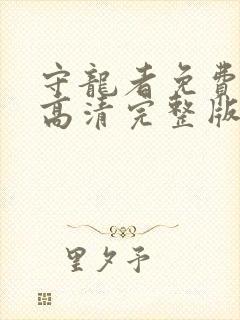 守龍者免費
高清完整版
里夕予